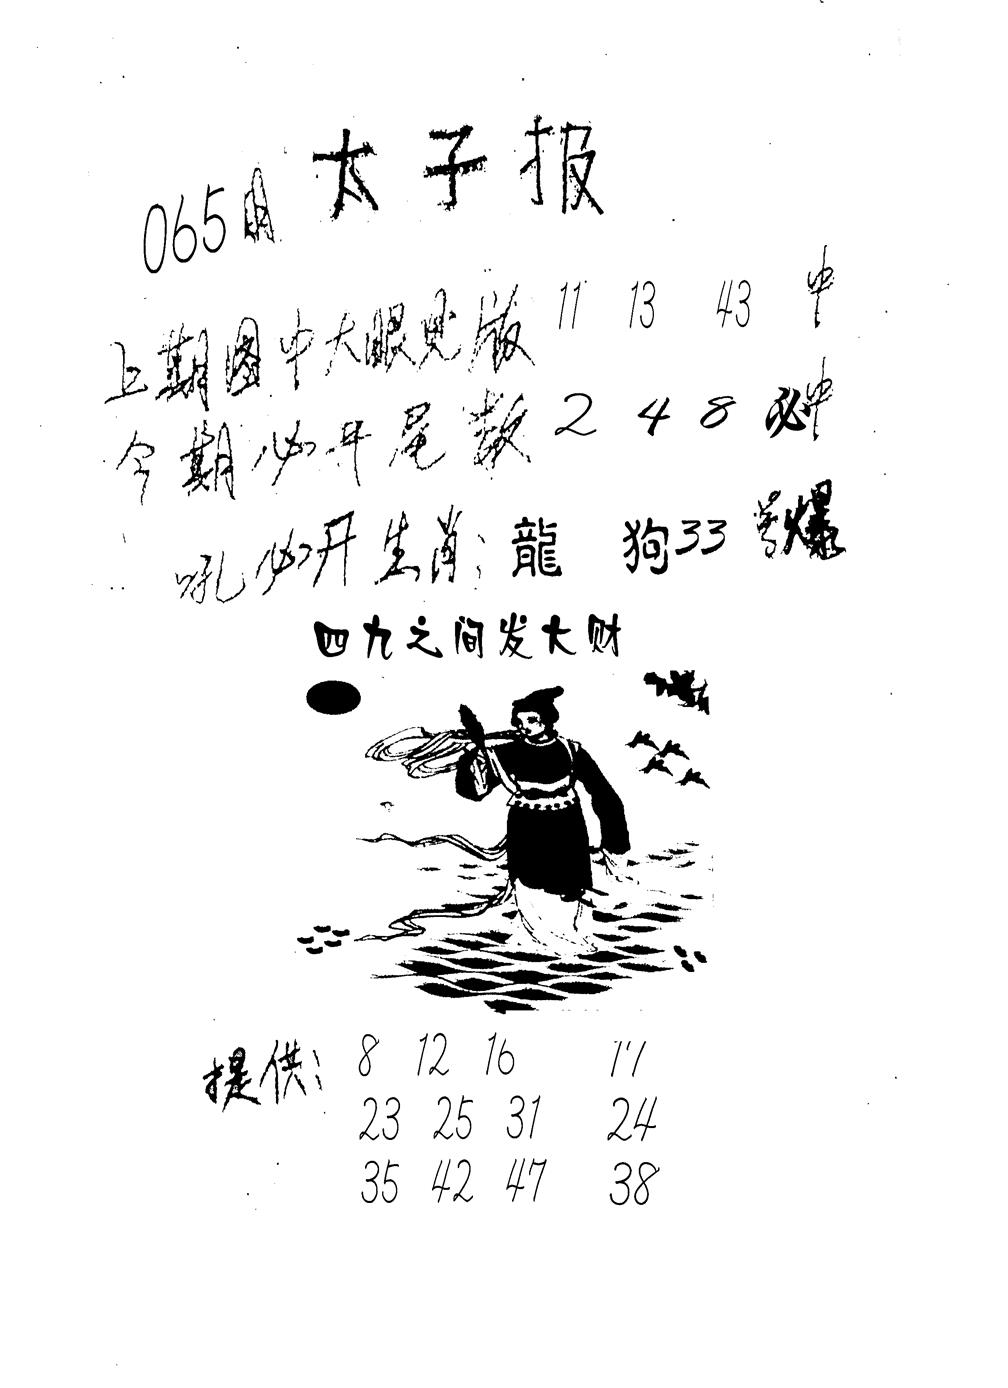 太子报
065期
上期图中大眼见版 11 13 43 中
今期必开尾数 2 4 8 必中
吼必开生肖: 龍 狗 33 号爆
四九之间发大财
提供: 8 12 16 17
23 25 31 24
35 42 47 38